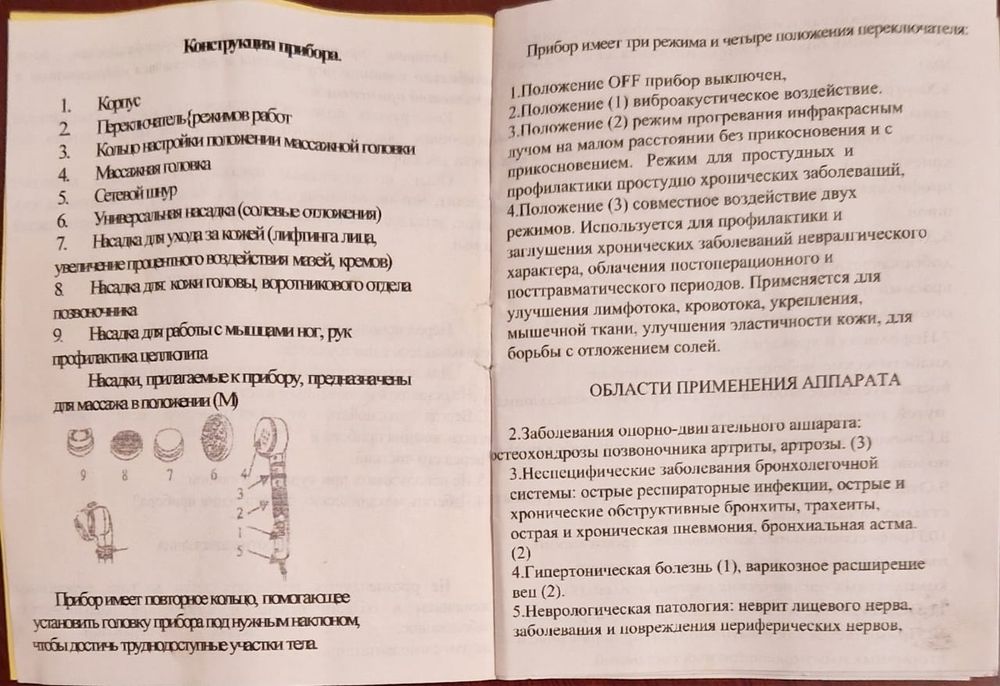 Конструкция прибора.
1. Корпус
2. Переключатель{режимов работ
3. Кольцо настройки положении массажной головки
4. Массажная головка
5. Сетевой шнур
6. Универсальная насадка (солевые отложения)
7. Насадка для ухода за кожей (лифтинга лица,
увеличение процентного воздействия мазей, кремов)
8. Насадка для кожи головы, воротникового отдела
позвоночника
9. Насадка для работы с мышцами ног, рук
профилактика целлюлита
Насадки, прилагаемые к прибору, предназначены
для массажа в положении (М)
9 8 7 6 4
3
2
1
5
Прибор имеет повторное кольцо, помогающее
установить головку прибора под нужным наклоном,
чтобы достичь труднодоступные участки тела.
Прибор имеет три режима и четыре положения переключателя:
1.Положение OFF прибор выключен,
2.Положение (1) виброакустическое воздействие.
3.Положение (2) режим прогревания инфракрасным
лучом на малом расстоянии без прикосновения и с
прикосновением. Режим для простудных и
профилактики простудно хронических заболеваний,
4.Положение (3) совместное воздействие двух
режимов. Используется для профилактики и
заглушения хронических заболеваний невралгического
характера, облачения постоперационного и
посттравматического периодов. Применяется для
улучшения лимфотока, кровотока, укрепления,
мышечной ткани, улучшения эластичности кожи, для
борьбы с отложением солей.
ОБЛАСТИ ПРИМЕНЕНИЯ АППАРАТА
2.Заболевания опорно-двигательного аппарата:
остеохондрозы позвоночника артриты, артрозы. (3)
3.Неспецифические заболевания бронхолегочной
системы: острые респираторные инфекции, острые и
хронические обструктивные бронхиты, трахеиты,
острая и хроническая пневмония, бронхиальная астма.
(2)
4.Гипертоническая болезнь (1), варикозное расширение
вен (2).
5.Неврологическая патология: неврит лицевого нерва,
заболевания и повреждения периферических нервов,